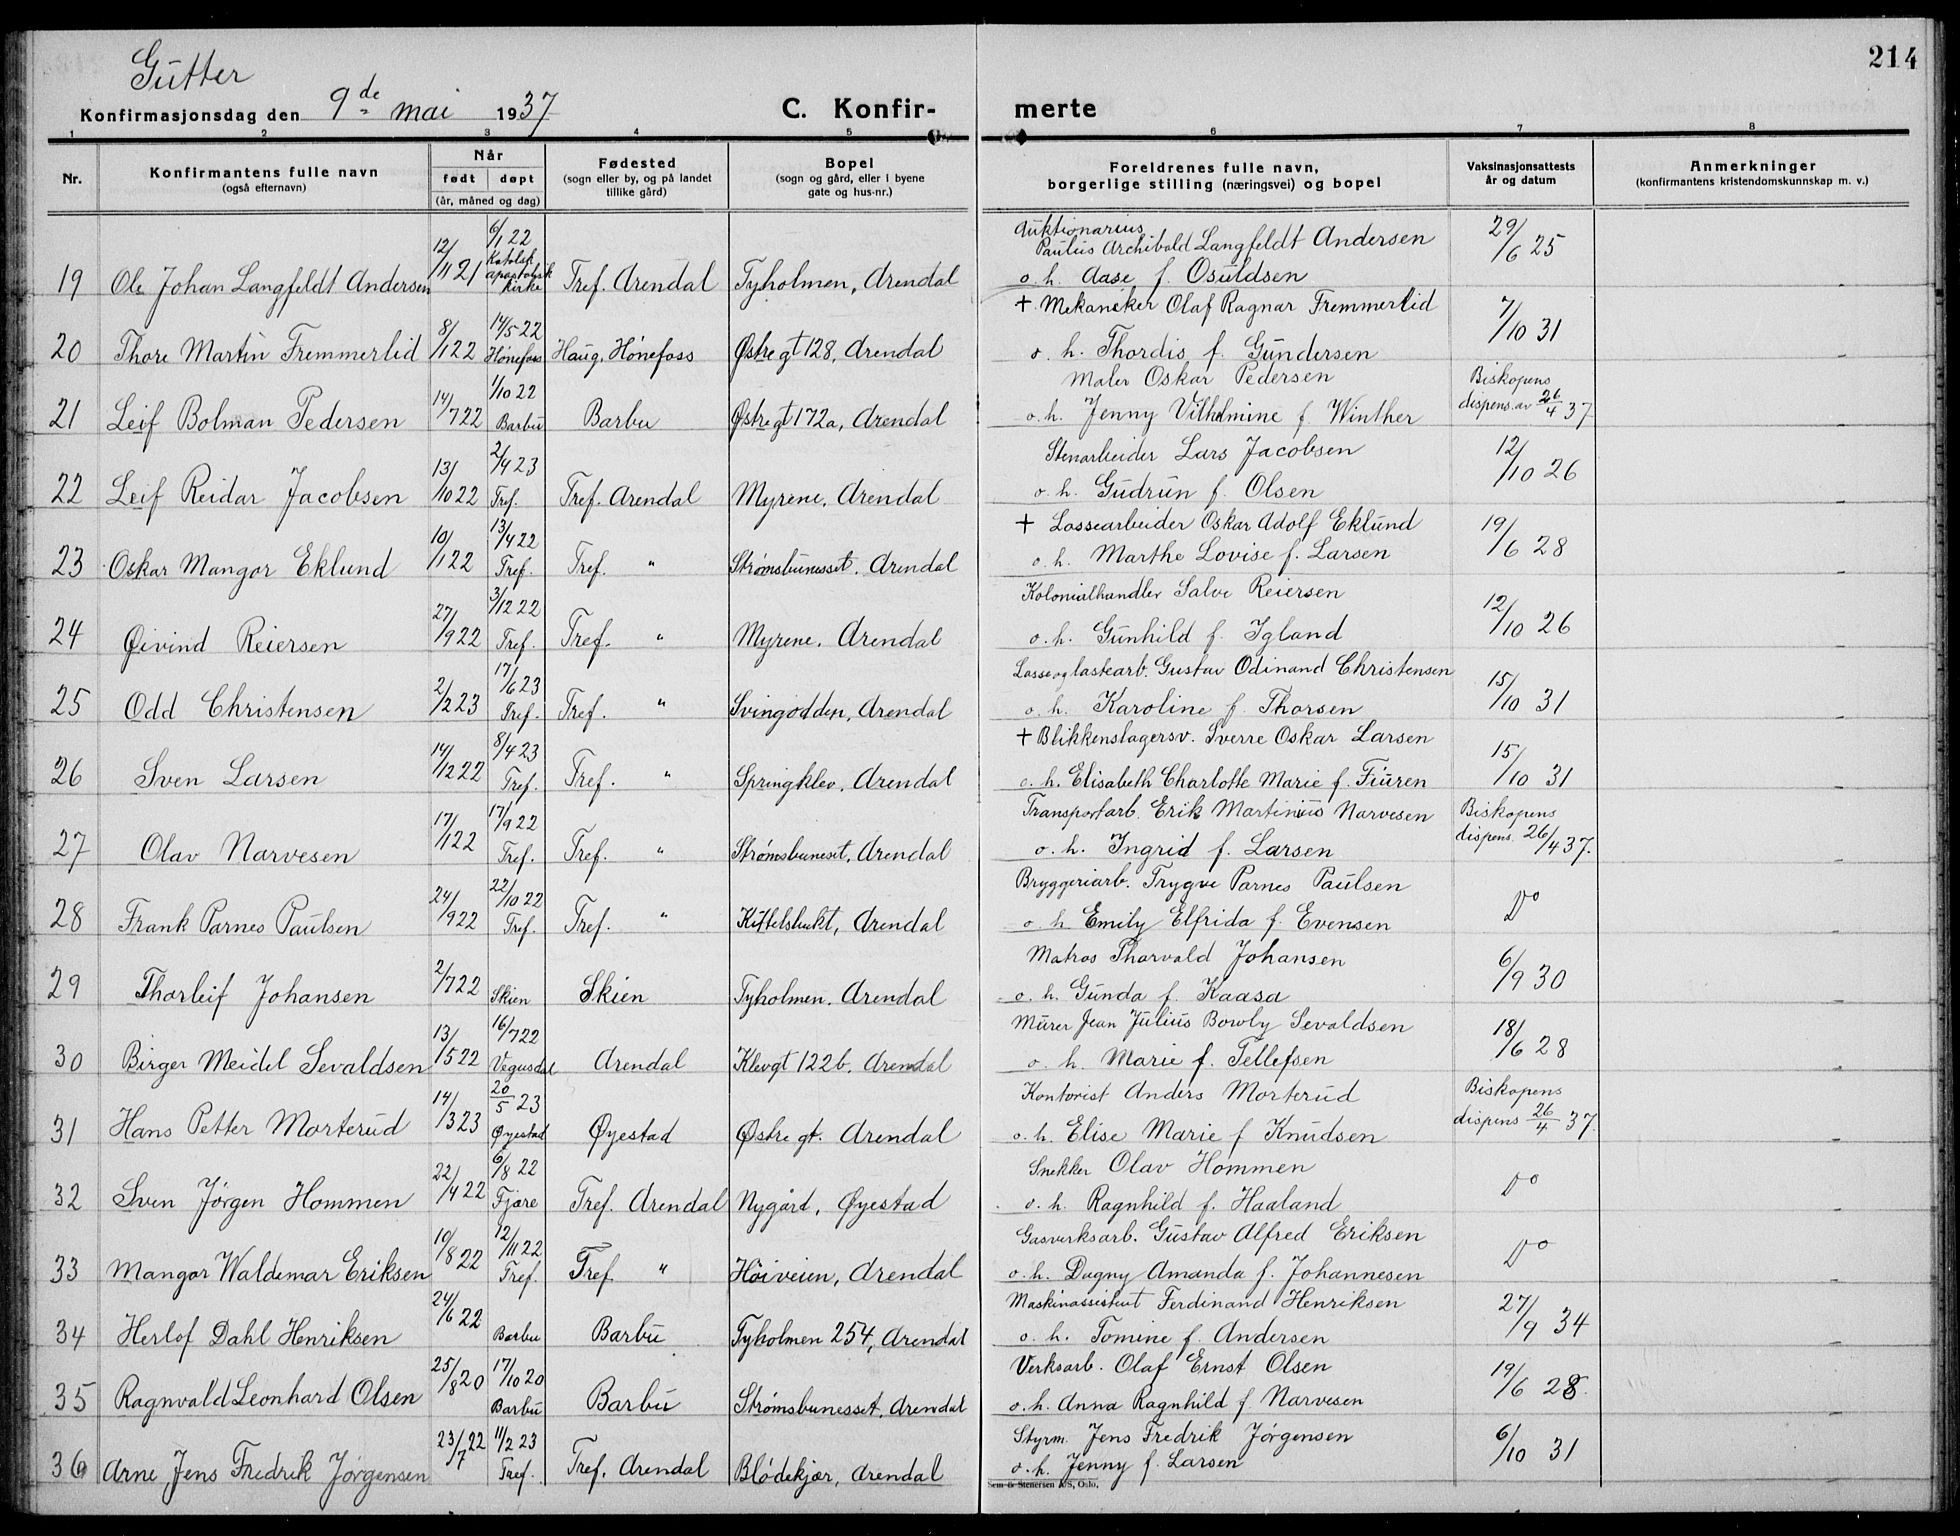 Gutter
214
Konfirmasjonsdag den 9de mai 1937
C. Konfir-
merte
1 2 3 4 5 6 7 8
Nr.
Konfirmantens fulle navn
(også efternavn)
Når
født døpt
(år, måned og dag)
Fødested
(sogn eller by, og på landet
tillike gård)
Bopel
(sogn og gård, eller i byene
gate og hus-nr.)
Foreldrenes fulle navn,
borgerlige stilling (næringsvei) og bopel
Vaksinasjonsattests
år og datum
Anmerkninger
(konfirmantens kristendomskunnskap m. v.)
19 Ole Johan Langfeldt Andersen 12/11 21 6/1 22 Katolsk apostolisk kirke Tref. Arendal Tyholmen, Arendal
Auktionarius
Paulus Archibald Langfeldt Andersen 29/6 25
o. h. Aase f. Osuldsen
20 Thore Martin Fremmerlid 8/1 22 14/5 22 Hønefoss Haug, Hønefoss Østre gt 128, Arendal
+ Mekaniker Olaf Ragnar Fremmerlid 7/10 31
o. h. Thordis f. Gundersen
21 Leif Bolman Pedersen 14/7 22 1/10 22 Barbu Barbu Østre gt 172a, Arendal
Maler Oskar Pedersen Biskopens
o. h. Jenny Vilhelmine f. Winther dispens. av 26/4 37
22 Leif Reidar Jacobsen 13/10 22 2/4 23 Tref. Tref. Arendal Myrene, Arendal
Stenarbeider Lars Jacobsen 12/10 26
o. h. Gudrun f. Olsen
23 Oskar Mangor Eklund 10/1 22 13/4 22 Tref. Tref. " Strømsbunesset. Arendal
+ Lossearbeider Oskar Adolf Eklund 19/6 28
o. h. Marthe Lovise f. Larsen
24 Øivind Reiersen 27/9 22 3/12 22 Tref. Tref. " Myrene, Arendal
Kolonialhandler Salve Reiersen 12/10 26
o. h. Gunhild f. Igland
25 Odd Christensen 2/2 23 17/6 23 Tref. Tref. " Svingodden, Arendal
Losse og lastearb. Gustav Odinand Christensen 15/10 31
o. h. Karoline f. Thorsen
26 Sven Larsen 14/12 22 8/4 23 Tref. Tref. " Springklev, Arendal
+ Blikkenslagersv. Sverre Oskar Larsen 15/10 31
o. h. Elisabeth Charlotte Marie f. Fiuren
27 Olav Narvesen 17/1 22 17/9 22 Tref. Tref. " Strømsbuneset, Arendal
Transportarb. Erik Martinius Narvesen Biskopens
o. h. Ingrid f. Larsen dispens. 26/4 37.
28 Frank Parnes Paulsen 24/9 22 22/10 22 Tref. Tref. " Kittelsbukt, Arendal
Bryggeriarb. Trygve Parnes Paulsen Do
o. h Emily Elfrida f. Evensen
29 Thorleif Johansen 2/7 22 Skien Skien Tyholmen. Arendal
Matros Thorvald Johansen 6/9 30
o. h. Gunda f. Kaasa
30 Birger Meidel Sevaldsen 13/5 22 16/7 22 Vegusdal Arendal Klevgt 122b. Arendal
Murer Jean Julius Bowly Sevaldsen 18/6 28
o. h. Marie f. Tellefsen
31 Hans Petter Morterud 14/3 23 20/5 23 Øyestad Øyestad Østre gt. Arendal
Kontorist Anders Morterud Biskopens
o. h. Elise Marie f Knudsen dispens 26/4 37.
32 Sven Jørgen Hommen 22/4 22 6/8 22 Fjære Tref. Arendal Nygård, Øyestad
Snekker Olav Hommen Do
o. h. Ragnhild f. Haaland
33 Mangor Waldemar Eriksen 10/8 22 12/11 22 Tref. Tref. " Høiveien, Arendal
Gasverksarb. Gustav Alfred Eriksen Do
o. h. Dagny Amanda f. Johannesen
34 Herlof Dahl Henriksen 24/6 22 Barbu Barbu Tyholmen 254, Arendal
Maskinassistent Ferdinand Henriksen 27/9 34
o. h. Tomine f. Andersen
35 Ragnvald Leonhard Olsen 25/8 20 17/10 20 Barbu Barbu Strømsbunesset, Arendal
Verksarb. Olaf Ernst Olsen 19/6 28.
o. h. Anna Ragnhild f. Narvesen
36 Arne Jens Fredrik Jørgensen 23/7 22 11/2 23 Tref. Tref. Arendal Blødekjær, Arendal
Styrm. Jens Fredrik Jørgensen 6/10 31
o. h. Jenny f. Larsen
Sem & Stenersen A/S, Oslo.